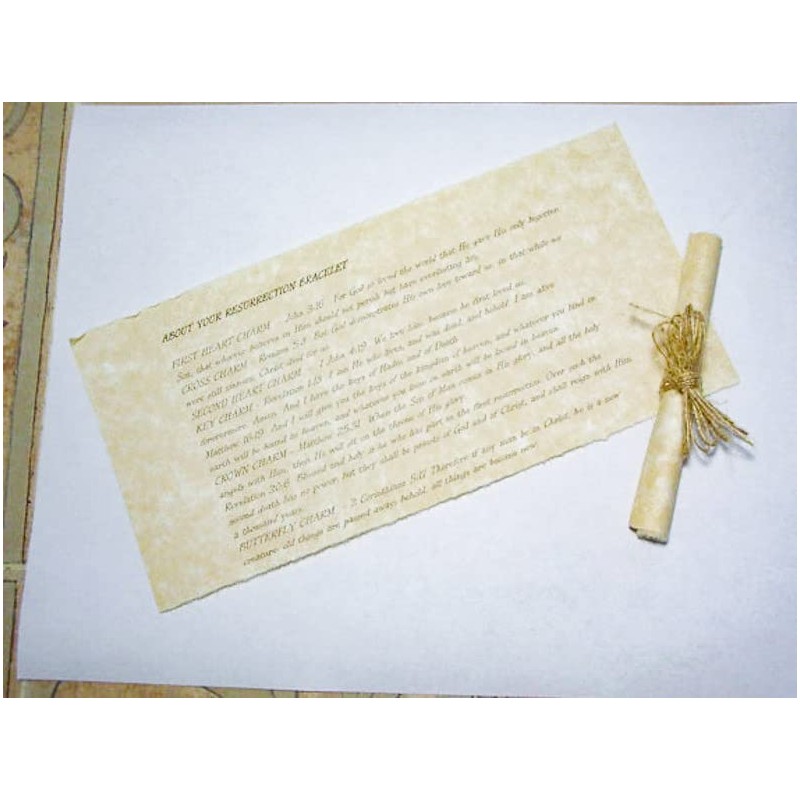 ABOUT YOUR RESURRECTION BRACELET
FIRST HEART CHARM - John 3:16 For God so loved the world that He gave His only begotten
Son, that whoever believes in Him should not perish but have everlasting life.
CROSS CHARM - Romans 5:8 But God demonstrates His own love toward us, in that while we
were still sinners, Christ died for us.
SECOND HEART CHARM - 1 John 4:19 We love Him because he first loved us.
KEY CHARM - Revelation 1:18 I am He who lives, and was dead, and behold I am alive
forevermore. Amen. And I have the keys of Hades and of Death.
Matthew 16:19 And I will give you the keys of the kingdom of heaven, and whatever you bind on
earth will be bound in heaven, and whatever you loose on earth will be loosed in heaven.
CROWN CHARM - Matthew 25:31 When the Son of Man comes in His glory, and all the holy
angels with Him, then He will sit on the throne of His glory.
Revelation 20:6 Blessed and holy is he who has part in the first resurrection. Over such the
second death has no power, but they shall be priests of God and of Christ, and shall reign with Him
a thousand years.
BUTTERFLY CHARM - 2 Corinthians 5:17 Therefore if any man be in Christ, he is a new
creature: old things are passed away; behold, all things are become new.